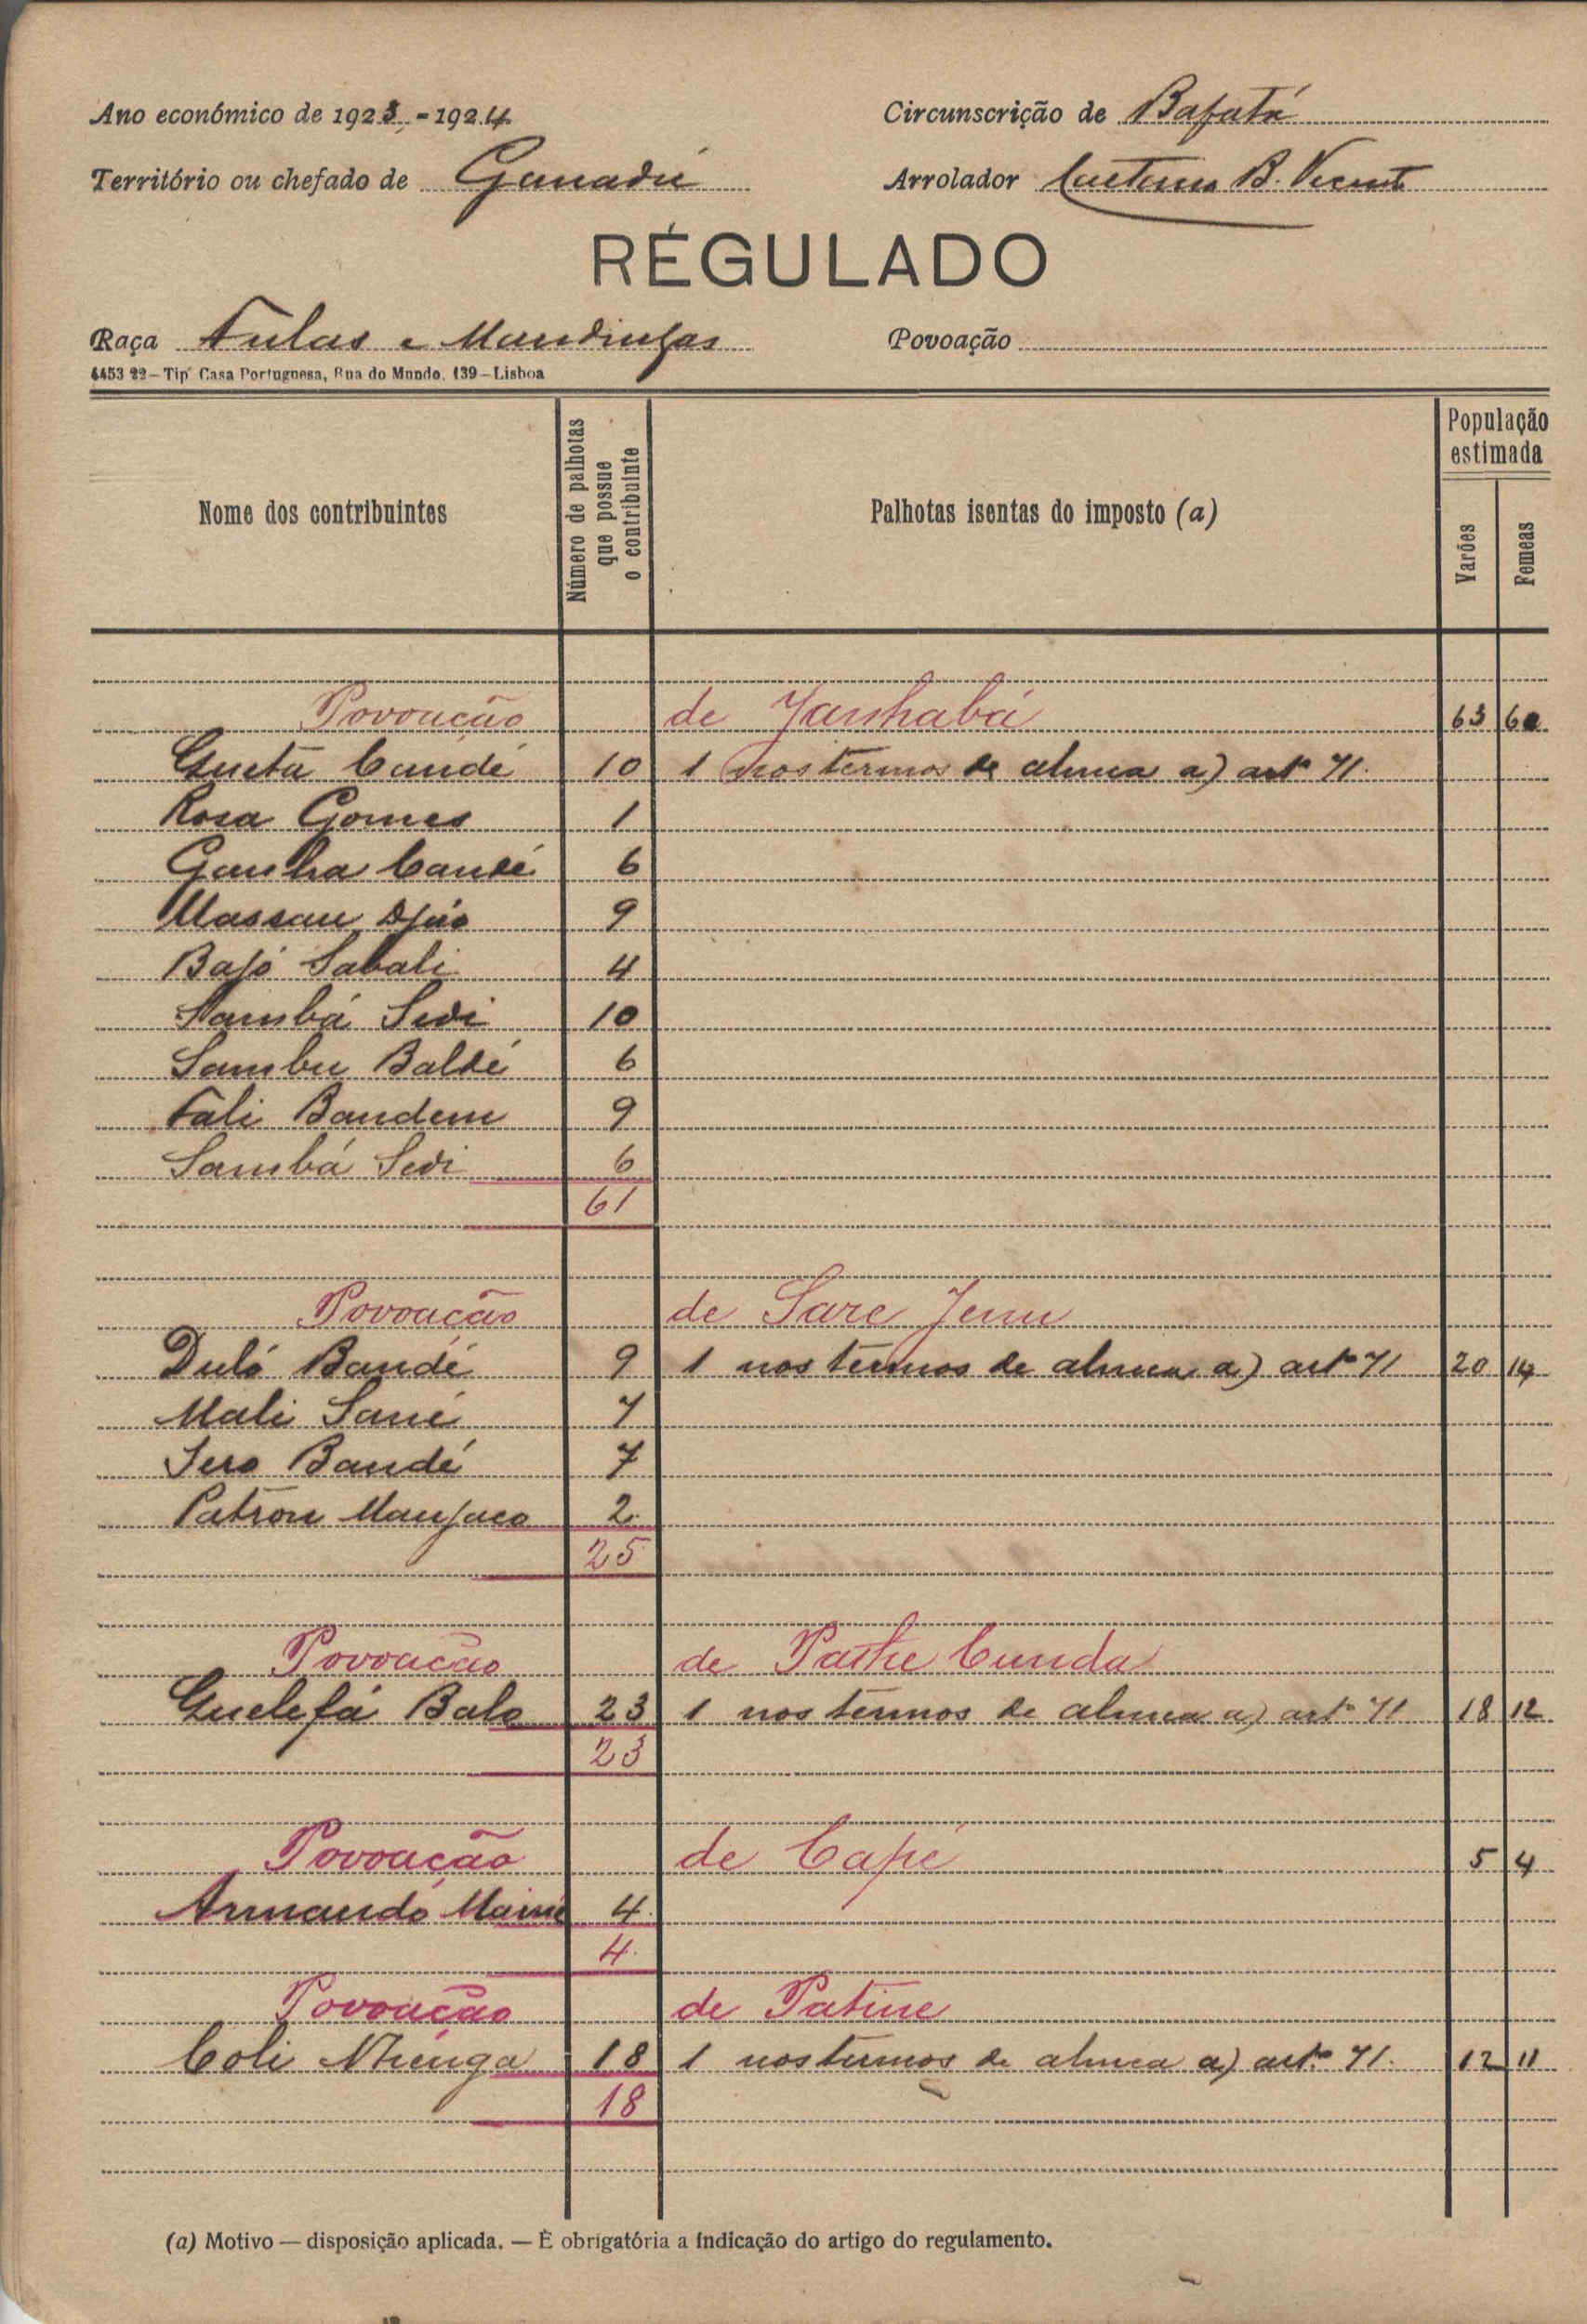 Ano económico de 1923-1924 Circunscrição de Bafatá
Território ou chefado de Ganadú Arrolador Caetano B. Vicente
RÉGULADO
Raça Fulas e Mandingas Povoação
4453 22 – Tip. Casa Portuguesa, Rua do Mundo, 139 – Lisboa
Nome dos contribuintes Número de palhotas que possue o contribuinte Palhotas isentas do imposto (a) População estimada Varões Femeas
Povoação de Janhabá 63 60
Gueta Candé 10 1 nos termos de alinea a) artº 71.
Rosa Gomes 1
Ganha Candé 6
Massau Djáo 9
Bajó Sabali 4
Sambá Sidi 10
Sambu Baldé 6
Fali Bandem 9
Sambá Sidi 6
61
Povoação de Sare
Duló Bandé 9 1 nos termos de alinea a) artº 71 20 14
Mali Sané 7
Sero Bandé 7
Patron Manjaco 2
25
Povoação de Pathe Cunda
Guelefá Balo 23 1 nos termos de alinea a) artº 71 18 12
23
Povoação de Capé 5 4
Armando Mainé 4
4
Povoação de Patine
Coli 18 1 nos termos de alinea a) artº 71. 12 11
18
(a) Motivo — disposição aplicada. — É obrigatória a indicação do artigo do regulamento.